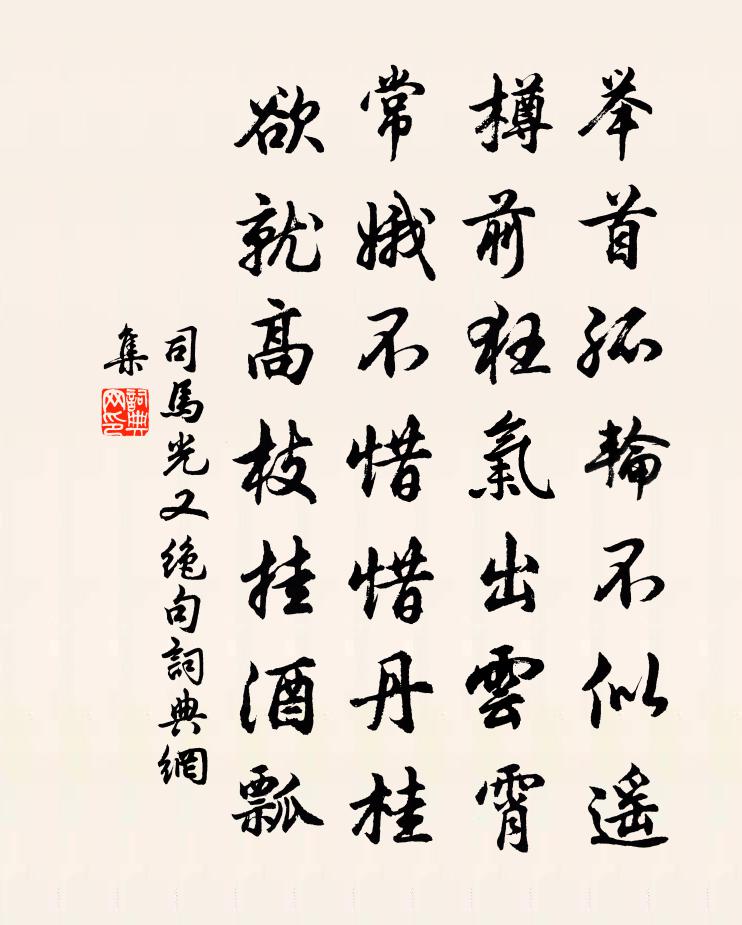 举首孤輪不似遥
樽前狂氣出雲霄
常娥不惜惜丹桂
欲就高枝挂酒瓢
司馬光又绝句詞典網
集
詞典
网印